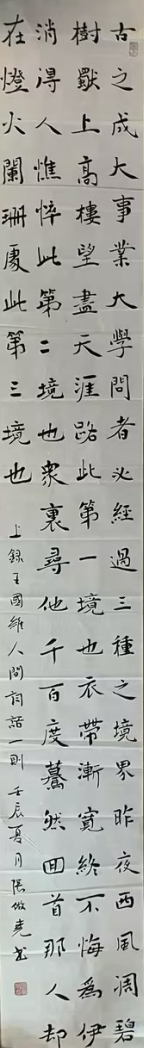 古之成大事業大學問者必經過三種之境界昨夜西風凋碧
樹獨上高樓望盡天涯路此第一境也衣帶漸寬終不悔為伊
消得人憔悴此第二境也眾裏尋他千百度驀然回首那人却
在燈火闌珊處此第三境也
上錄王國維人間詞話一則 壬辰夏月